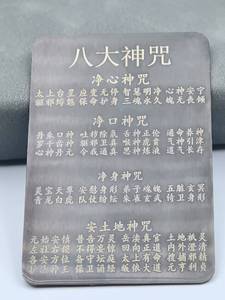 八大神咒
净心神咒
太上台星 应变无停 智慧明净 心神安宁
驱邪缚魅 保命护身 三魂永久 魄无丧倾
净口神咒
丹朱口神 吐秽除氛 舌神正伦 通命养神
罗千齿神 却邪卫真 喉神虎贲 气神引津
心神丹元 令我通真 思神炼液 道气长存
净身神咒
灵宝天尊 安慰身形 弟子魂魄 五脏玄冥
青龙白虎 队仗纷纭 朱雀玄武 侍卫身形
安土地神咒
元始安镇 普告万灵 岳渎真官 土地祇灵
左社右稷 不得妄惊 回向正道 内外澄清
各安方位 备守坛庭 太上有命 搜捕邪精
护法神王 保卫诵经 皈依大道 元亨利贞